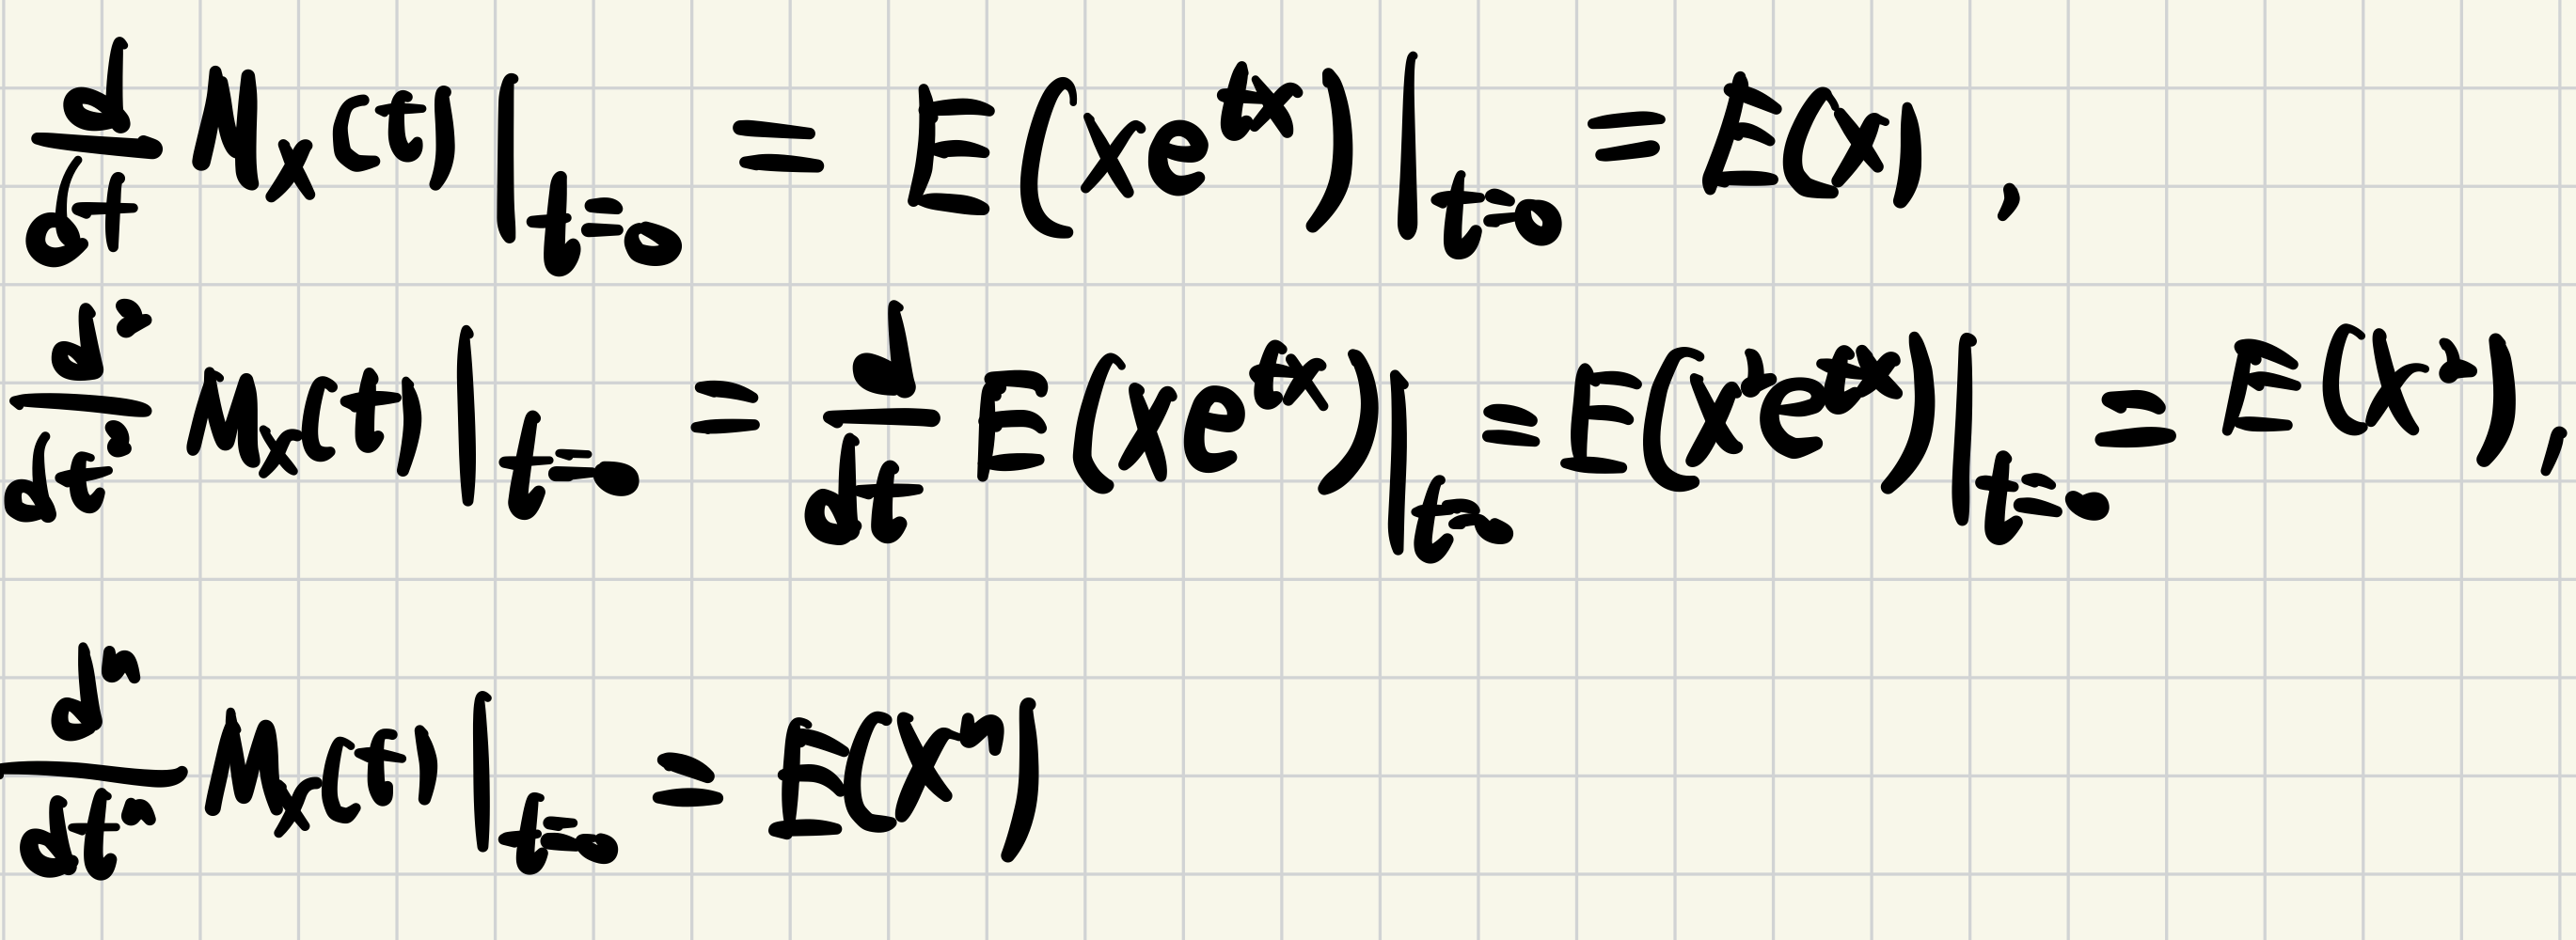 $\frac{d}{dt} M_X(t) \Big|_{t=0} = E(Xe^{tX}) \Big|_{t=0} = E(X),$
$\frac{d^2}{dt^2} M_X(t) \Big|_{t=0} = \frac{d}{dt} E(Xe^{tX}) \Big|_{t=0} = E(X^2e^{tX}) \Big|_{t=0} = E(X^2),$
$\frac{d^n}{dt^n} M_X(t) \Big|_{t=0} = E(X^n)$